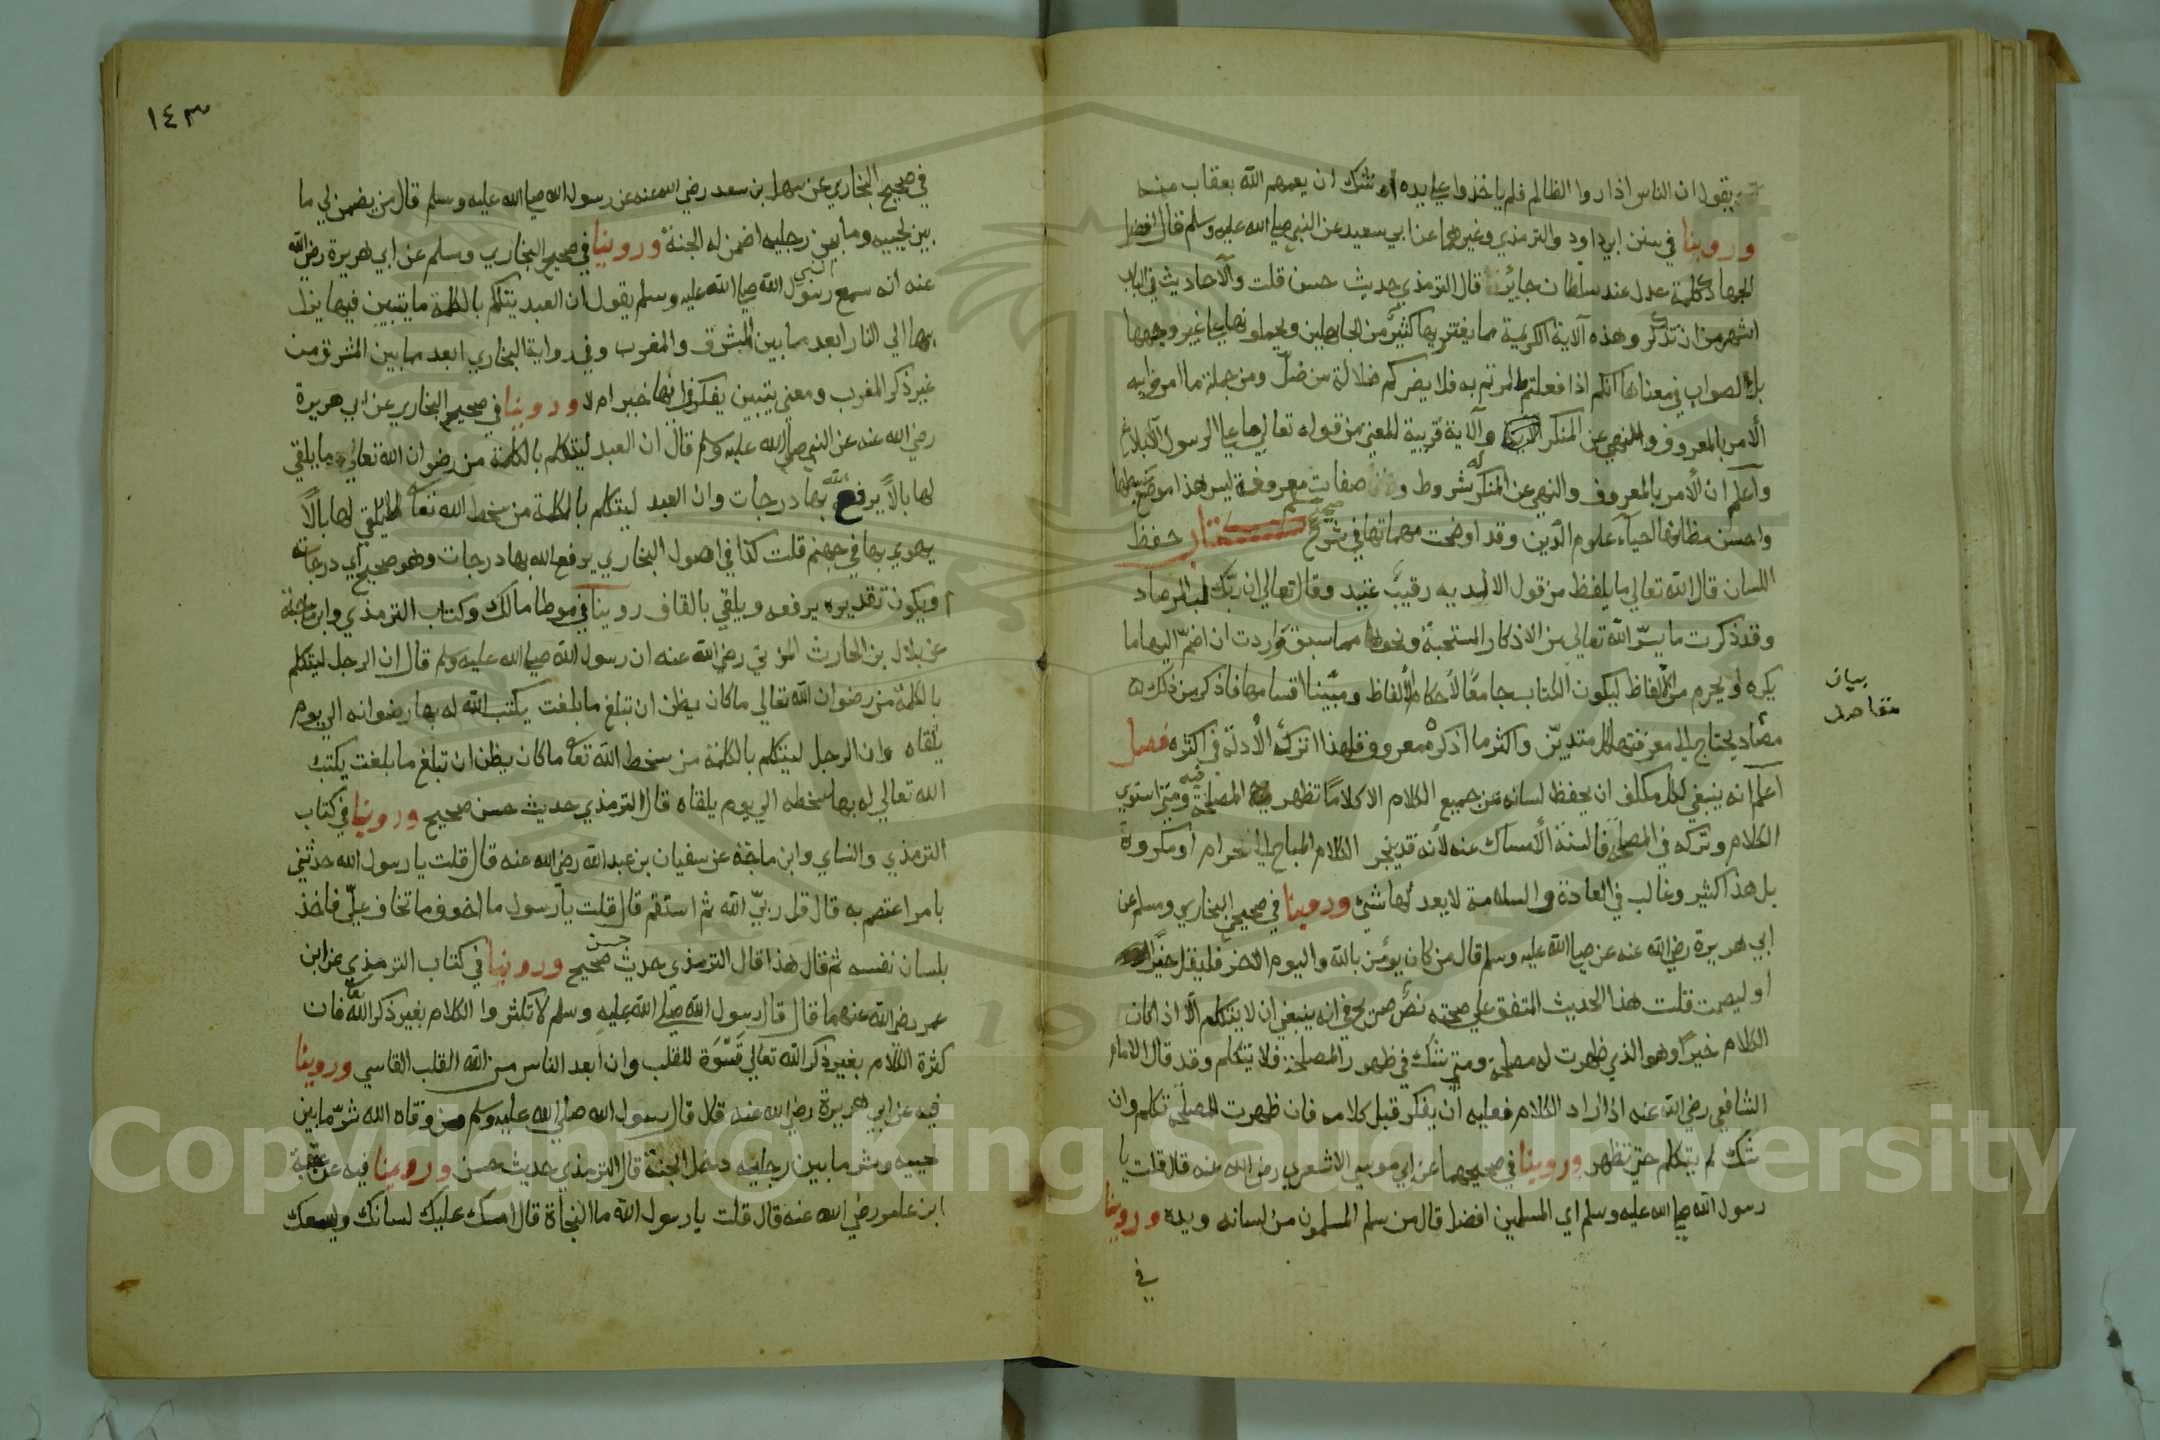 يقول ان الناس اذا روا الظالم فلم ياخذوا علي يده اوشك ان يعمهم الله بعقاب منه
وروينا في سنن ابي داود والترمذي وغيرهما عن ابي سعيد عن النبي صلي الله عليه وسلم قال افضل
الجهاد كلمة عدل عند سلطان جائر قال الترمذي حديث حسن قلت والآحاديث في الباب
اشهر من ان تذكر وهذه آلاية الكريمة مما يغتر بها كثير من الجاهلين ويحملونها علي غير وجهها
بل الصواب في معناها انكم اذا فعلتم ما امرتم به فلا يضركم ضلالة من ضل ومن جملة ما امروا به
ألامر بالمعروف والنهي عن المنكر وآلاية قريبة المعني من قوله تعالي ما علي الرسول الا البلاغ
وآعلم ان ألامر بالمعروف والنهي عن المنكر له شروط وصفات معروفة ليس هذا موضع بسطها
واحسن مظانها احياء علوم الدين وقد اوضحت مهماتها في شرح صحيح مسلم حفظ
اللسان قال الله تعالي ما يلفظ من قول الا لديه رقيب عتيد وقال تعالي ان ربك لبالمرصاد
وقد ذكرت ما يسر الله تعالي من الاذكار المستحبة ونحوها مما سبق واردت ان اضم اليها ما
يكره او يحرم من الألفاظ ليكون الكتاب جامعا لأحكام الألفاظ ومبينا اقسامها فاذكر من ذلك
بيان
مقاصد
مقاصد يحتاج الي معرفتها كل متدين واكثر ما اذكره معروف فلهذا اترك الأدلة في اكثره فصل
آعلم انه ينبغي لكل مكلف ان يحفظ لسانه عن جميع الكلام الا كلاما تظهر فيه المصلحة ومتي استوي
الكلام وتركه في المصلحة فالسنة ألأمساك عنه لأنه قد ينجر الكلام المباح الي حرام او مكروه
بل هذا كثير وغالب في العادة والسلامة لا يعدلها شئ وروينا في صحيحي البخاري ومسلم عن
ابي هريرة رضي الله عنه عن صلي الله عليه وسلم قال من كان يؤمن بالله واليوم الاخر فليقل خيرا
او ليصمت قلت هذا الحديث المتفق علي صحته نص صريح في انه ينبغي ان لا يتكلم الا اذا كان
الكلام خيرا وهو الذي ظهرت له مصلحة ومتي شك في ظهور المصلحة فلا يتكلم وقد قال الامام
الشافعي رضي الله عنه اذا اراد الكلام فعليه ان يفكر قبل كلامه فان ظهرت المصلحة تكلم وان
شك لم يتكلم حتي تظهر وروينا في صحيحهما عن ابي موسي الاشعري رضي الله عنه قال قلت يا
رسول الله صلي الله عليه وسلم اي المسلمين افضل قال من سلم المسلمون من لسانه ويده وروينا
في
١٤٣
في صحيح البخاري عن سهل بن سعد رضي الله عنه عن رسول الله صلي الله عليه وسلم قال من يضمن لي ما
بين لحييه وما بين رجليه اضمن له الجنة وروينا في صحيح البخاري ومسلم عن ابي هريرة رضي الله
عنه انه سمع رسول الله صلي الله عليه وسلم يقول ان العبد يتكلم بالكلمة ما يتبين فيها يزل
بها الي النار ابعد مما بين المشرق والمغرب وفي رواية البخاري ابعد مما بين المشرق من
غير ذكر المغرب ومعني يتبين يفكر في انها خير ام لا وروينا في صحيح البخاري عن ابي هريرة
رضي الله عنه عن النبي صلي الله عليه وسلم قال ان العبد ليتكلم بالكلمة من رضوان الله تعالي ما يلقي
لها بالاً يرفع الله بها درجات وان العبد ليتكلم بالكلمة من سخط الله تعا لا يلقي لها بالاً
يهوي بها في جهنم قلت كذا في اصول البخاري يرفع الله بها درجات وهو صحيح اي درجاته
ويكون تقديره يرفعه ويلقي بالقاف روينا في موطا مالك وكتاب الترمذي وابن ماجة
عن بلال بن الحارث المزني رضي الله عنه ان رسول الله صلي الله عليه وسلم قال ان الرجل ليتكلم
بالكلمة من رضوان الله تعالي ما كان يظن ان تبلغ ما بلغت يكتب الله له بها رضوانه الي يوم
يلقاه وان الرجل ليتكلم بالكلمة من سخط الله تعا ما كان يظن ان تبلغ ما بلغت يكتب
الله تعالي له بها سخطه الي يوم يلقاه قال الترمذي حديث حسن صحيح وروينا في كتاب
الترمذي والنساي وابن ماجة عن سفيان بن عبد الله رضي الله عنه قال قلت يا رسول الله حدثني
بامر اعتصم به قال قل ربي الله ثم استقم قال قلت يا رسول ما اخوف ما تخاف علي فاخذ
بلسان نفسه ثم قال هذا قال الترمذي حديث حسن صحيح وروينا في كتاب الترمذي عن ابن
عمر رضي الله عنهما قال قال رسول الله صلي الله عليه وسلم لا تكثروا الكلام بغير ذكر الله فان
كثرة الكلام بغير ذكر الله تعالي قسوة للقلب وان ابعد الناس من الله القلب القاسي وروينا
فيه عن ابي هريرة رضي الله عنه قال قال رسول الله صلي الله عليه وسلم من وقاه الله شر ما بين
لحييه وشر ما بين رجليه دخل الجنة قال الترمذي حديث حسن وروينا فيه عن عقبة
ابن عامر رضي الله عنه قال قلت يا رسول الله ما النجاة قال امسك عليك لسانك وليسعك
Copyright © King Saud University